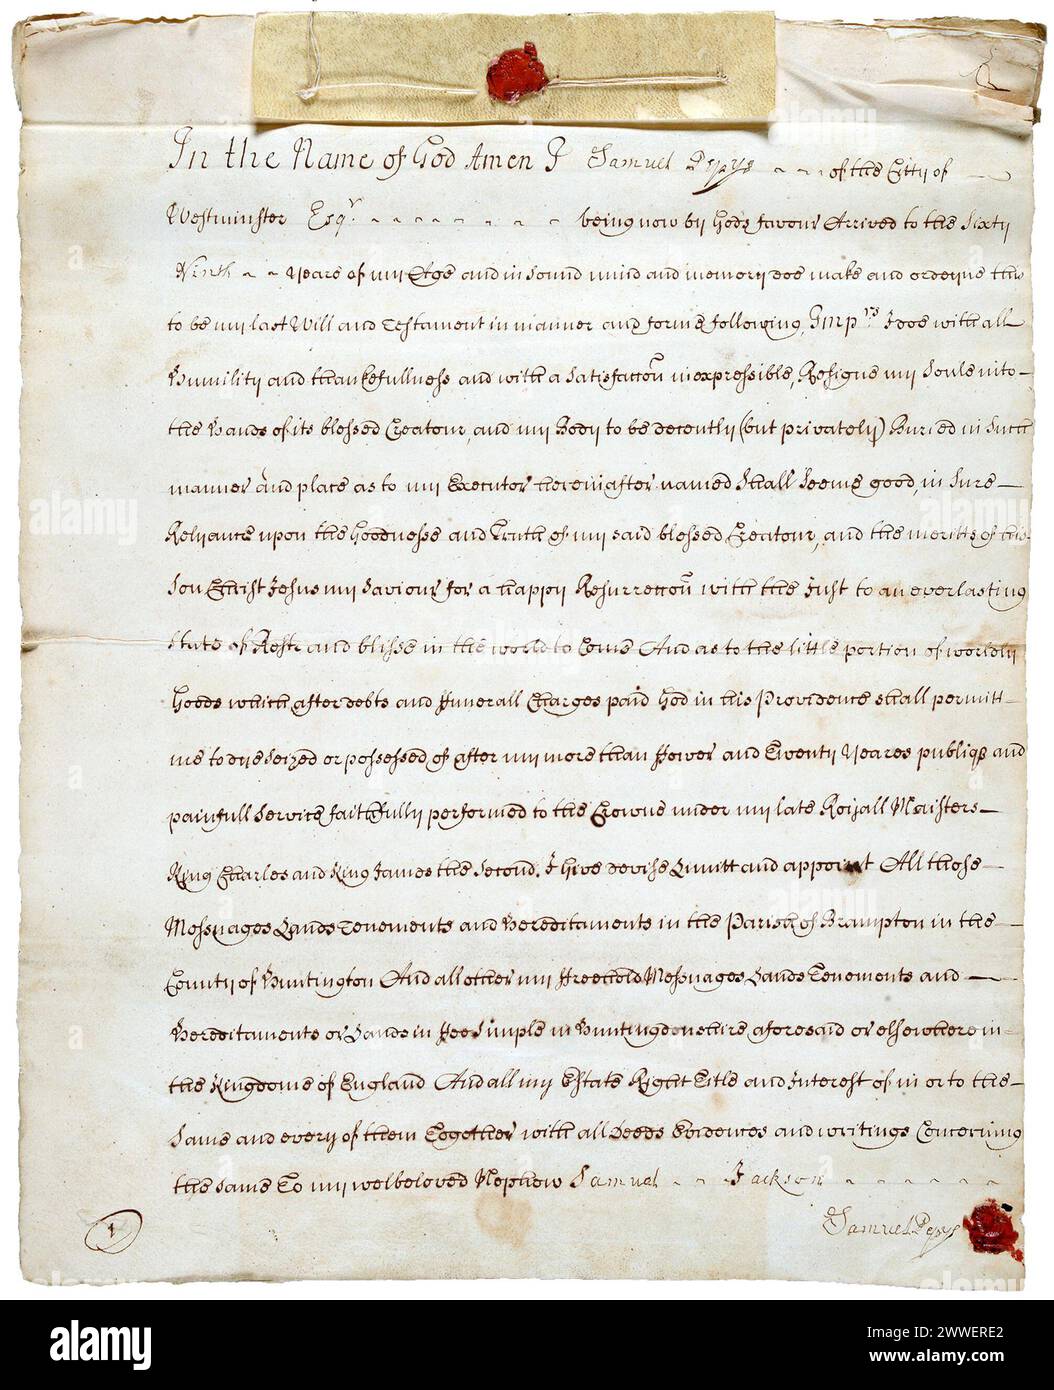 In the Name of God Amen I Samuel Pepys of the City of
Westminster Esqr. being now by Gods favour Arrived to the Sixty
Ninth yeare of my Age and in sound mind and memory doe make and ordeyne this
to be my last Will and Testament in manner and forme following, Impris I doe with all
Humility and thankefullness and with a Satisfaccon inexpressible, Resigne my Soule into
the Hands of its blessed Creatour, and my Body to be decently (but privately) Buried in such
manner and place as to my Executor hereinafter named Shall Seeme good, in Sure
Relyance upon the Goodnesse and Truth of my said blessed Creatour, and the meritts of his
Son Christ Jesus my Saviour for a happy Resurreccon with the Just to an everlasting
State of Rest and blisse in the world to Come And as to the little portion of worldly
Goods which after debts and Funerall Charges paid God in his Providence shall permitt
me to dye Seized or possessed of after my more than Fower and Twenty Yeares publique and
painfull Service faithfully performed to the Crowne under my late Royall Maisters
King Charles and King James the Second. I Give devise Limitt and appoint All those
Messuages Lands Tenements and Hereditaments in the Parish of Brampton in the
County of Huntington And all other my Freehold Messuages Lands Tenements and
Hereditaments or Lands in Fee Simple in Huntingdonshire aforesaid or elsewhere in
the Kingdome of England And all my Estate Right Title and Interest of in or to the
Same and every of them Together with all Deeds Evidences and writings Concerning
the same To my welbeloved Nephew Samuel Jackson
Samuel Pepys
1
alamy
Image ID: 2WWERE2
www.alamy.com